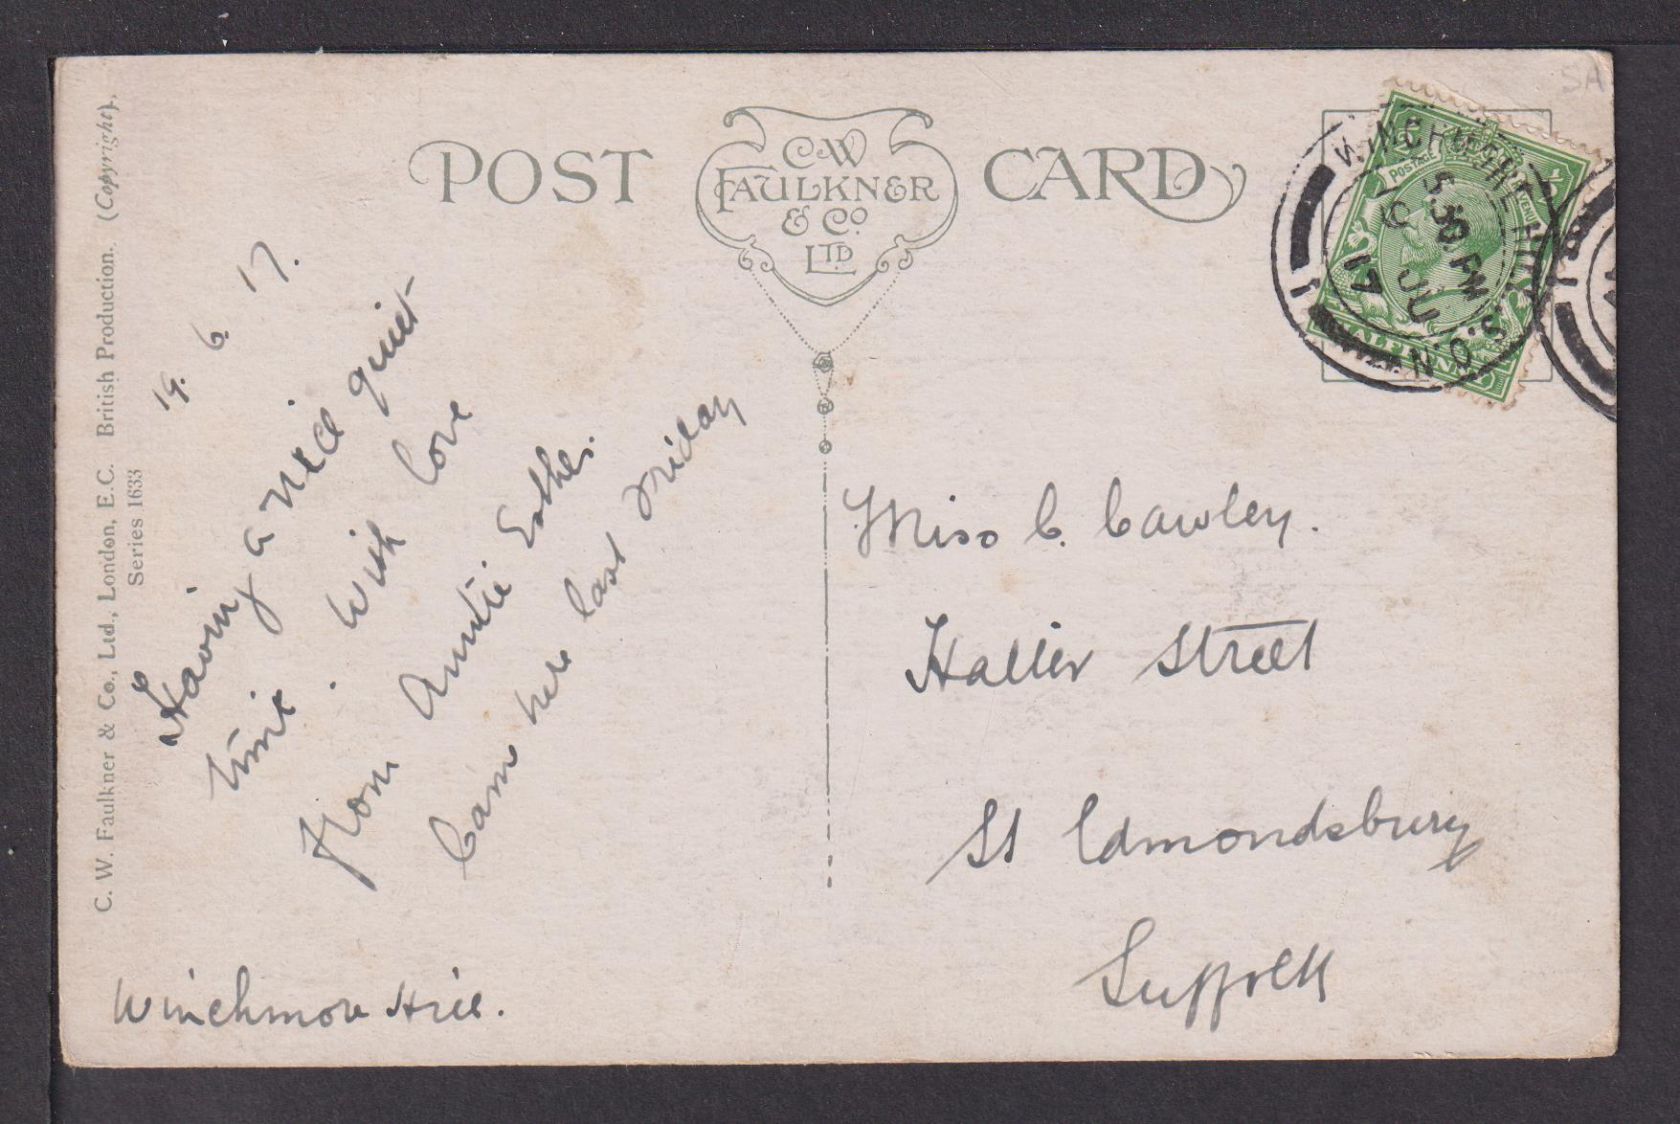 POST CARD
C.W
FAULKNER
& CO.
LTD
C. W. Faulkner & Co., Ltd., London, E.C. British Production. (Copyright).
Series 1633
19. 6. 17.
Having a nice quiet
time. With love
from Auntie Esther.
Came here last Friday
Winchmore Hill.
Miss C. Cawley.
Hatter Street
St Edmondsbury
Suffolk
WINCHMORE HILL S.O. N.
5.30 PM
JU
17
1
POSTAGE
HALFPENNY
SA